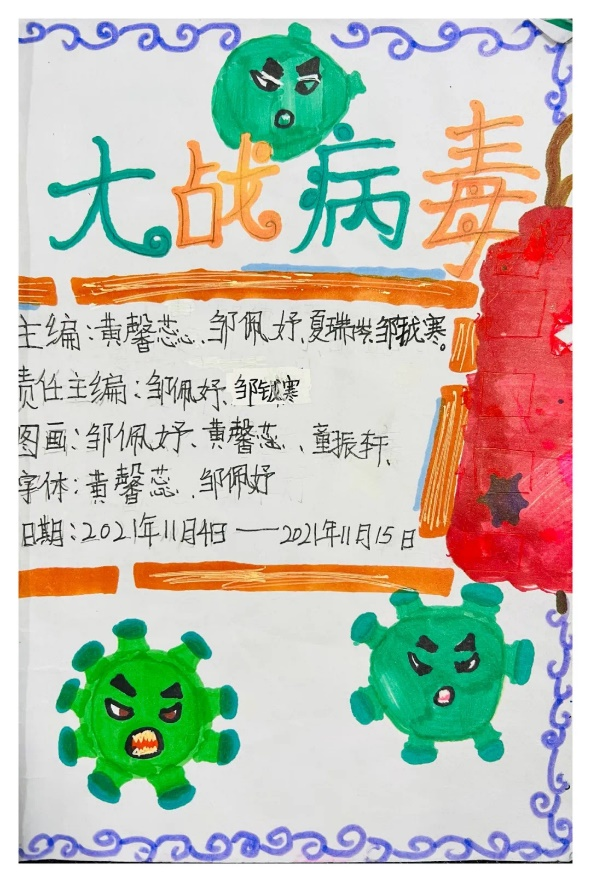 大战病毒
主编:黄馨蕊、邹佩妤、夏瑞、邹钺寒。
责任主编:邹佩妤、邹钺寒
图画:邹佩妤、黄馨蕊、童振轩、
字体:黄馨蕊、邹佩妤
日期:2021年11月4日——2021年11月15日